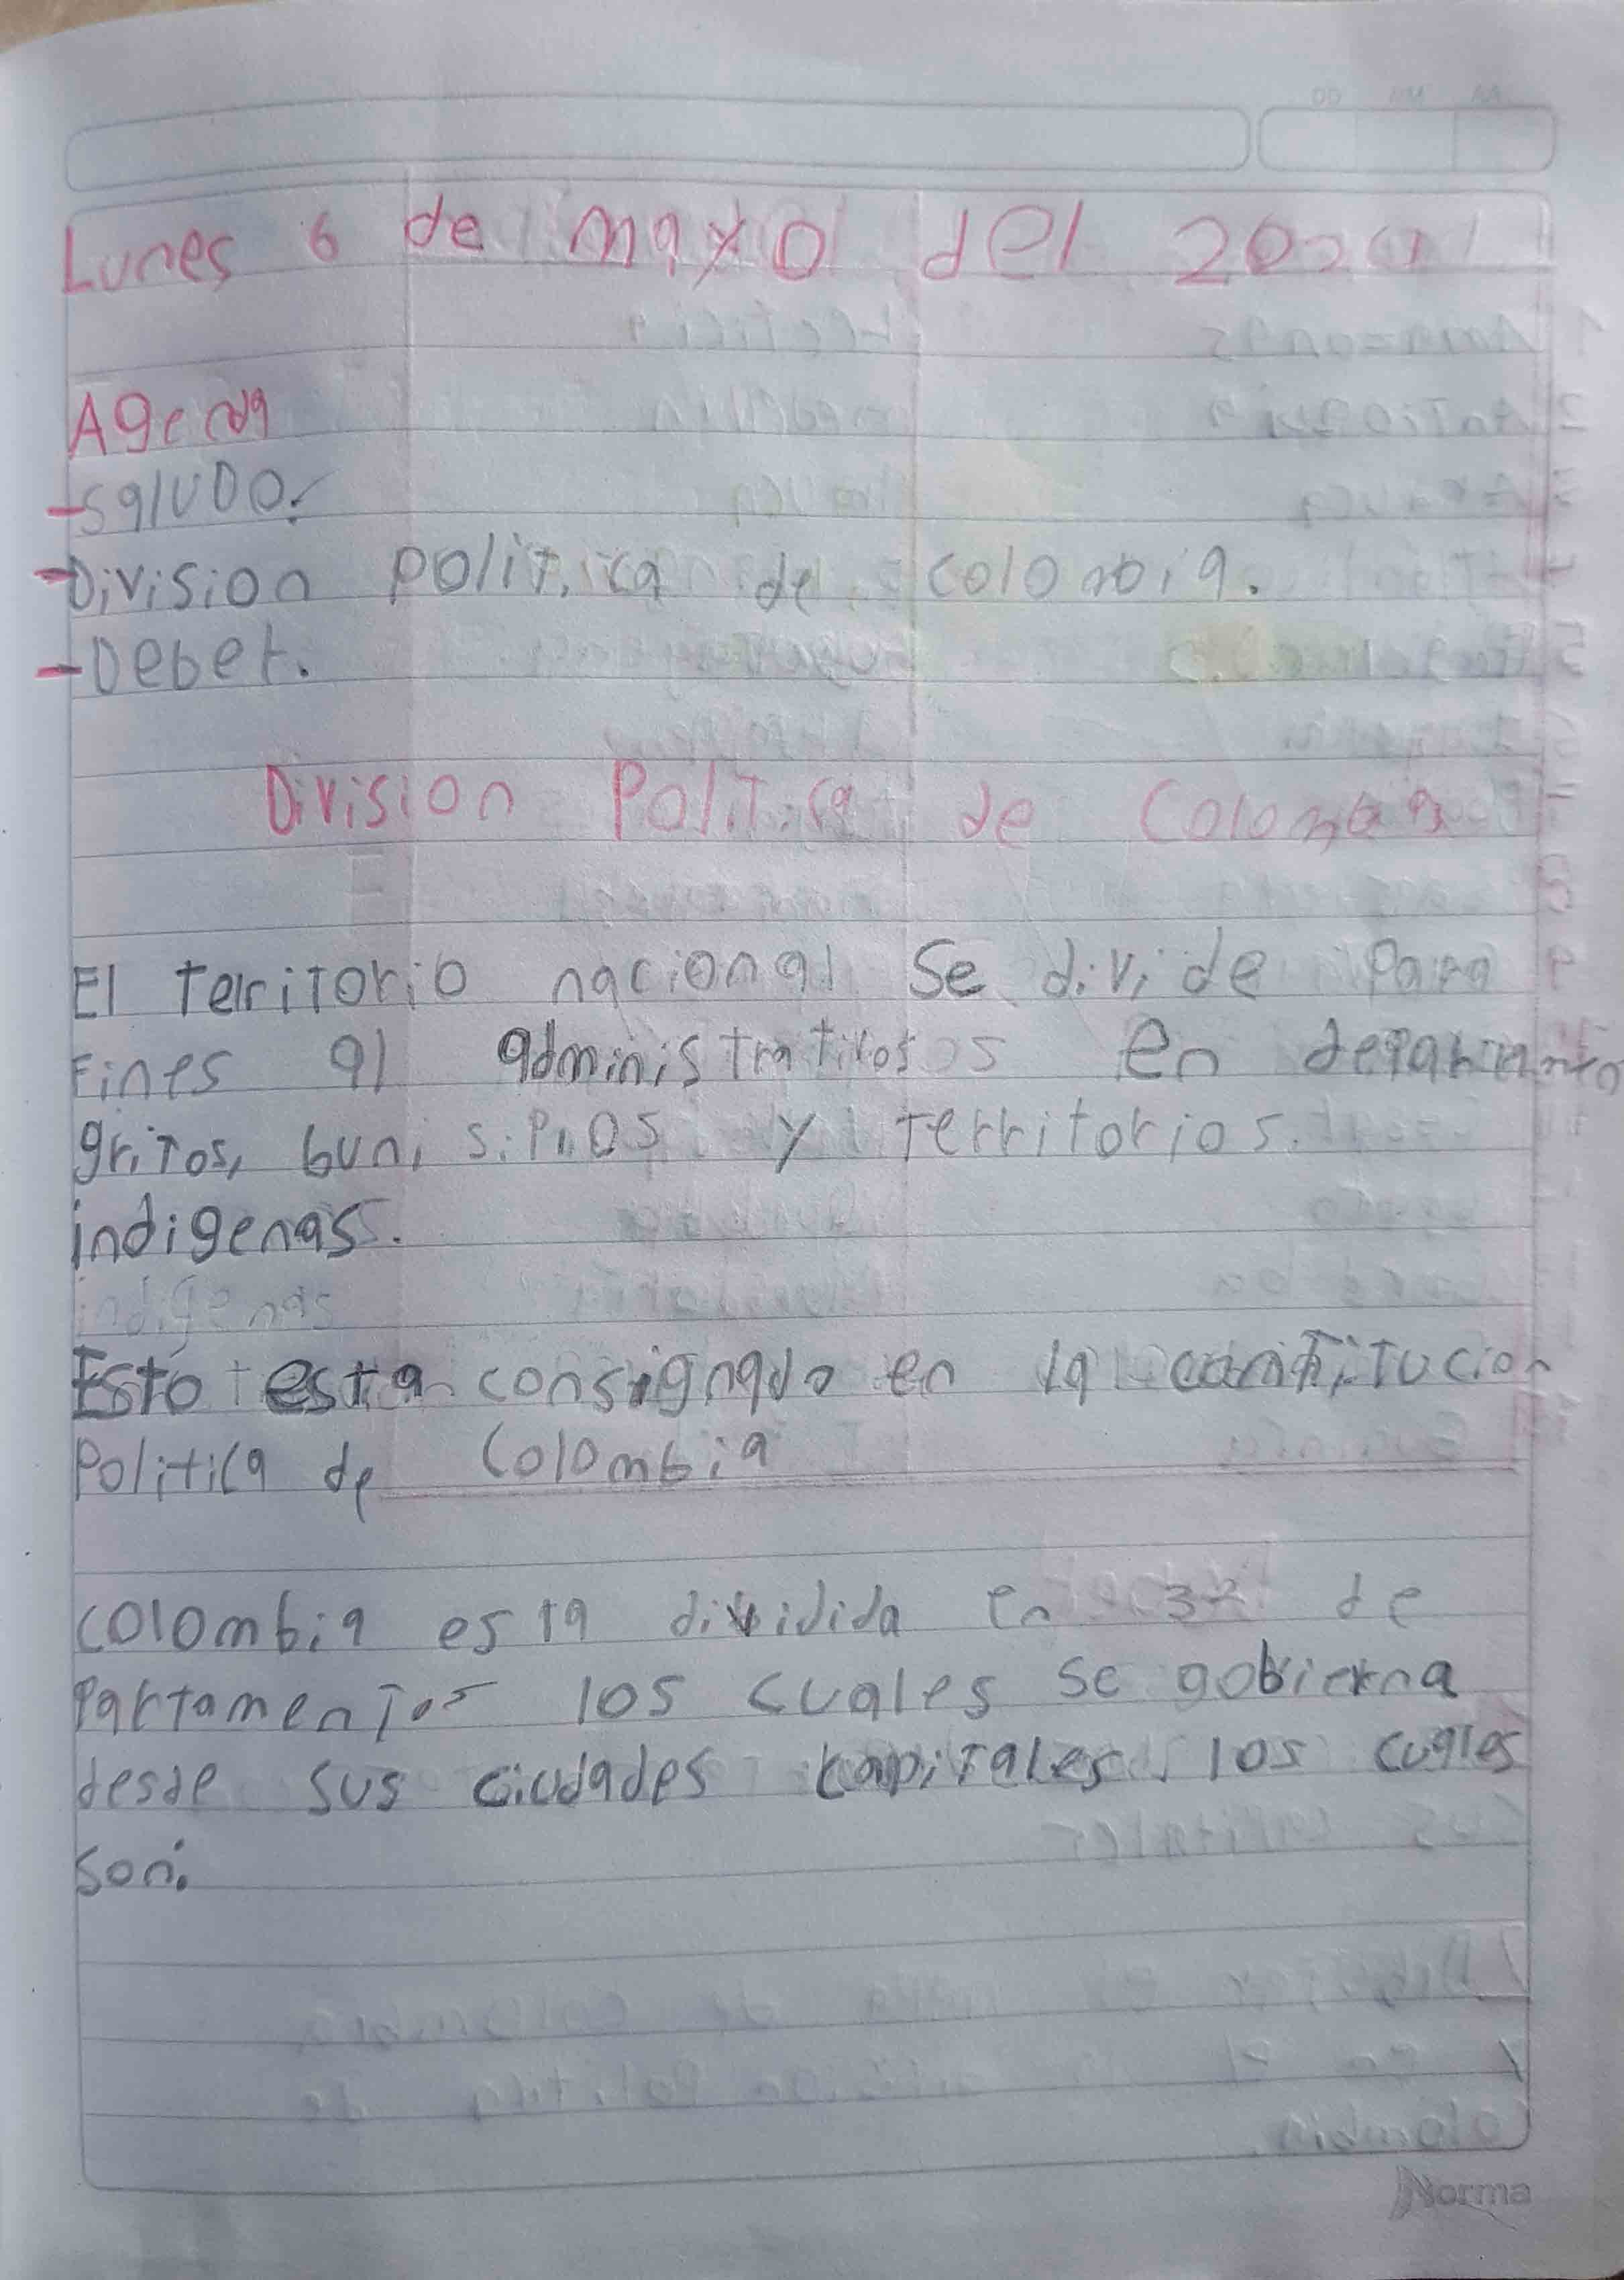 DD MM AA
Lunes 6 de mayo del 202
Agenda
-Saludo.
-Division politica de colombia.
-Deber.
Division Politica de Colombia
El territorio nacional Se divide Para
Fines al administrativos en
gritos, bunisipios y territorios.
indigenas.
indigenas
Esto esta consignado en la
Politica de Colombia
colombia esta dividida en 32 de
Partamentos los cuales se gobierna
desde sus ciudades capitales. los cuales
son:
Norma